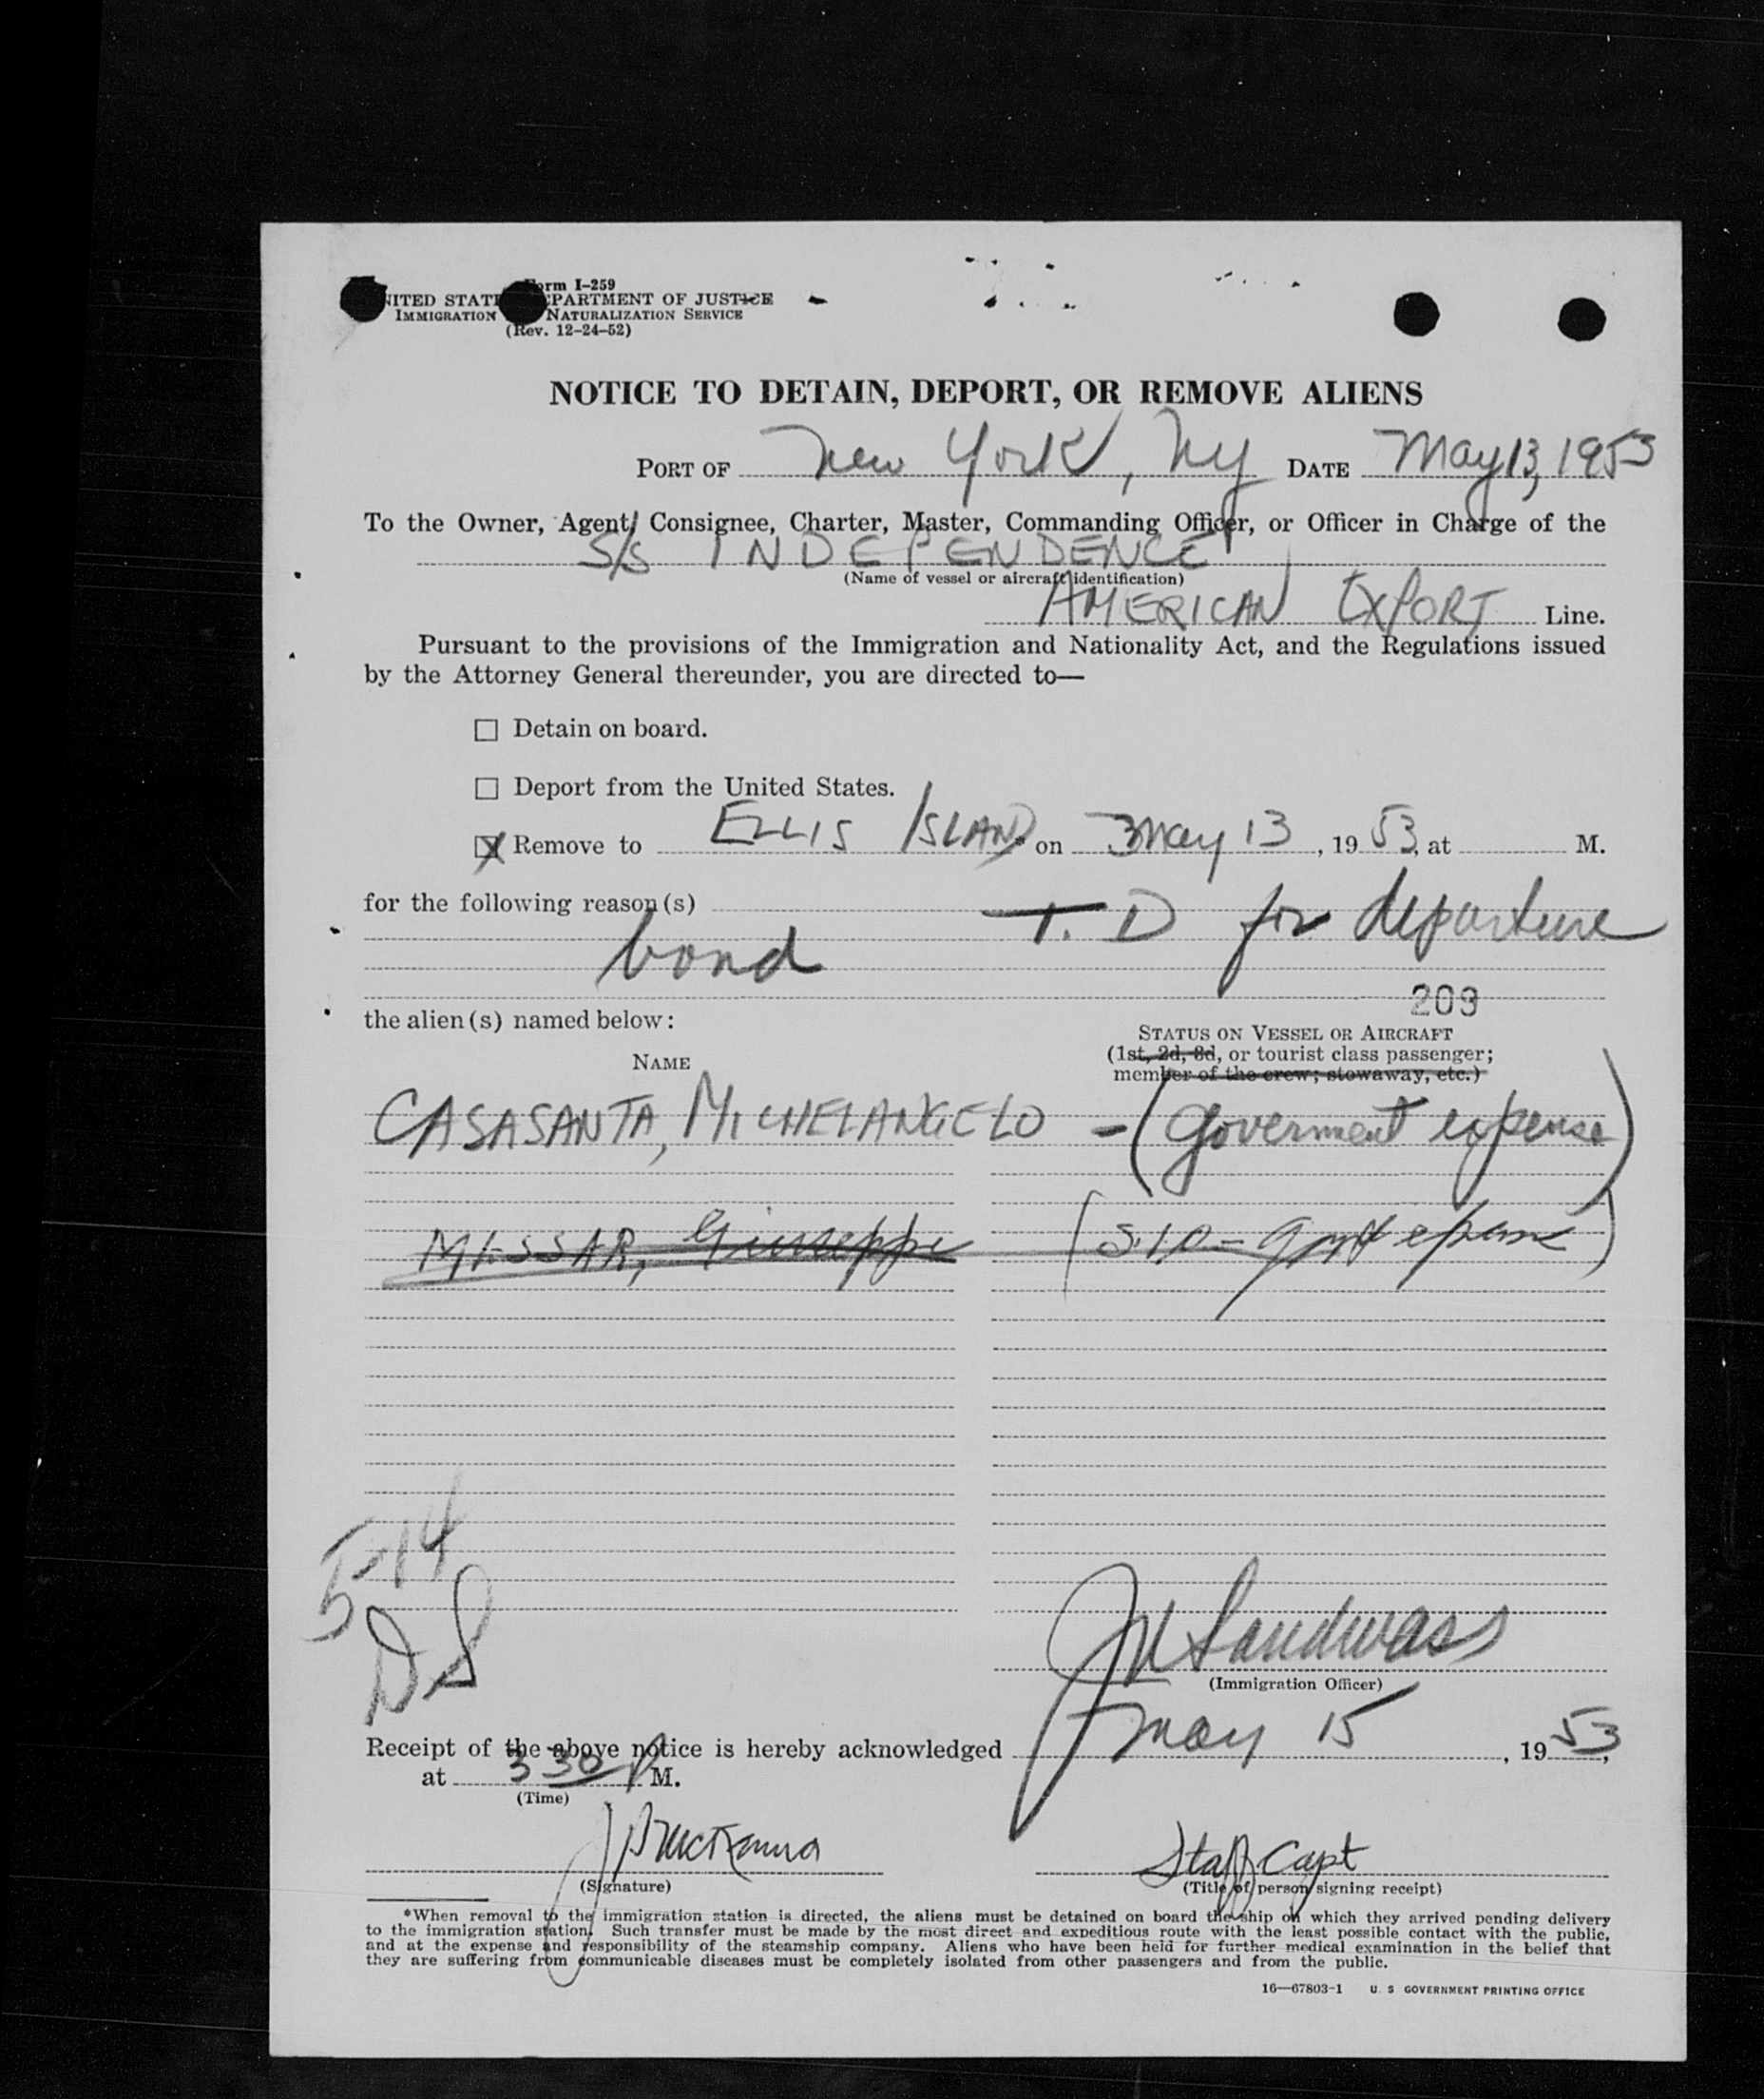 Form I-259
UNITED STATES DEPARTMENT OF JUSTICE
IMMIGRATION NATURALIZATION SERVICE
(Rev. 12-24-52)
NOTICE TO DETAIN, DEPORT, OR REMOVE ALIENS
PORT OF New York, Ny DATE May 13, 1953
To the Owner, Agent, Consignee, Charter, Master, Commanding Officer, or Officer in Charge of the
S/S INDEPENDENCE
(Name of vessel or aircraft identification)
AMERICAN EXPORT Line.
Pursuant to the provisions of the Immigration and Nationality Act, and the Regulations issued
by the Attorney General thereunder, you are directed to—
☐ Detain on board.
☐ Deport from the United States.
☒ Remove to ELLIS ISLAND on May 13, 1953, at M.
for the following reason(s) T. D for departure
bond
209
the alien(s) named below:
STATUS ON VESSEL OR AIRCRAFT
(1st, 2d, 3d, or tourist class passenger;
member of the crew; stowaway, etc.)
NAME
CASASANTA, MICHELANGELO - (Goverment expense)
MESSAR, Giuseppe (S.I.O - govt expense)
5-14
DS
(Immigration Officer)
Receipt of the above notice is hereby acknowledged May 15, 1953,
at 3 30 P M.
(Time)
Staff Capt
(Signature) (Title of person signing receipt)
*When removal to the immigration station is directed, the aliens must be detained on board the ship on which they arrived pending delivery
to the immigration station. Such transfer must be made by the most direct and expeditious route with the least possible contact with the public,
and at the expense and responsibility of the steamship company. Aliens who have been held for further medical examination in the belief that
they are suffering from communicable diseases must be completely isolated from other passengers and from the public.
16—67803-1 U. S GOVERNMENT PRINTING OFFICE